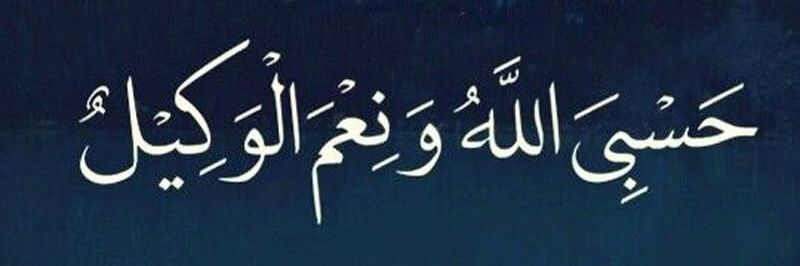 حَسْبِيَ اللَّهُ وَ نِعْمَ الْوَكِيْلُ